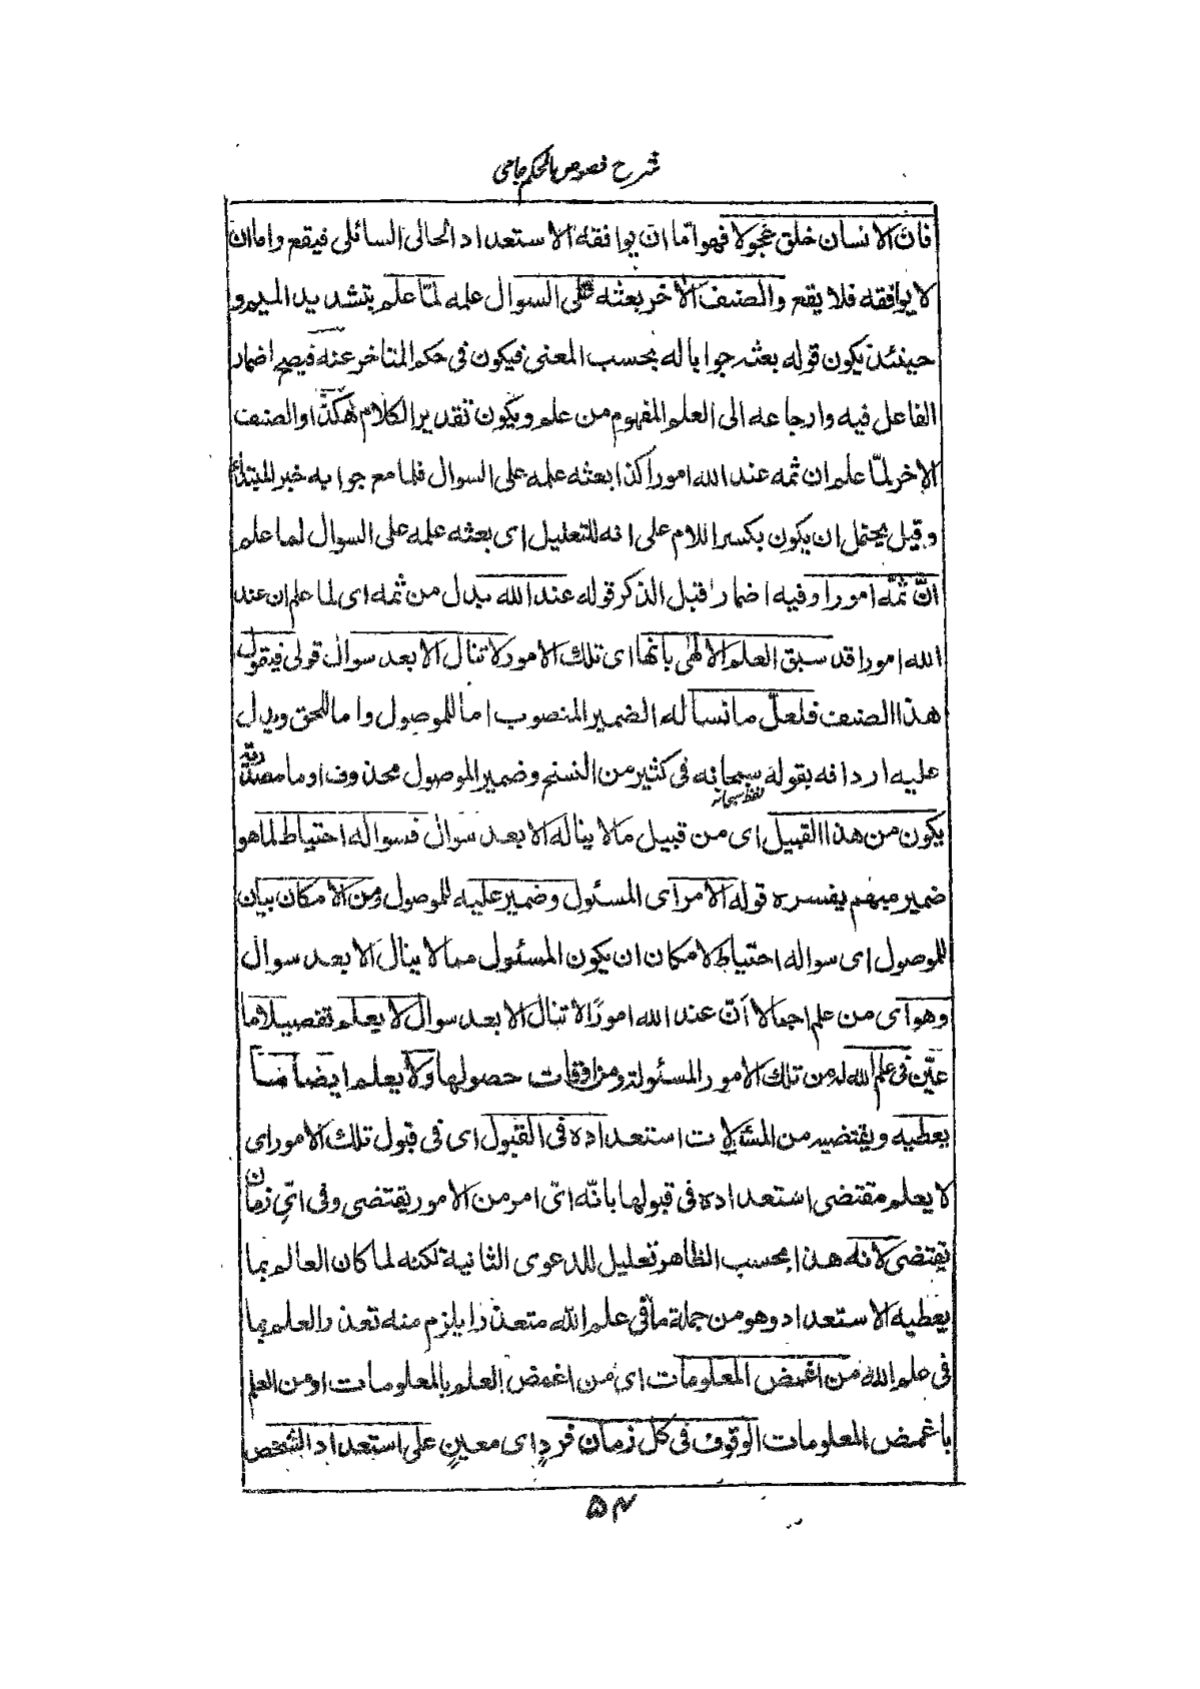 شرح فصوص الحکم جامی
فان الانسان خلق عجولا فهو اما ان يوافقه الاستعداد الحالى السائلى فيقع واما ان
لا يوافقه فلا يقع والصنف الآخر بعثه على السوال علمه لمّا علم بتشديد الميم و
حينئذ يكون قوله بعثه جوابا له بحسب المعنى فيكون فى حكم المتاخر عنه فيصح اضمار
الفاعل فيه وارجاعه الى العلم المفهوم من علم ويكون تقدير الكلام هكذا والصنف
الآخر لمّا علم ان ثمه عند الله امورا كذا بعثه علمه على السوال فلما مع جوابه خبر المبتدأ
وقيل يحتمل ان يكون بكسر اللام على انه للتعليل اى بعثه علمه على السوال لما علم
انّ ثمّه امورا وفيه اضمار قبل الذكر قوله عند الله بدل من ثمه اى لما علم ان عند
الله امورا قد سبق العلم الالهى بانها اى تلك الامور لا تنال الا بعد سوال قولى فيقول
هذا الصنف فلعلّ ما نسأله الضمير المنصوب اما للموصول واما للحق ويدل
عليه اردافه بقوله سبحانه فى كثير من النسخ وضمير الموصول محذوف او ما مصدرية
لفظ سبحانه
يكون من هذا القبيل اى من قبيل ما لا يناله الا بعد سوال فسواله احتياط لما هو
ضمير مبهم يفسره قوله الامر اى المسئول وضمير عليه للموصول ومن الامكان بيان
للموصول اى سواله احتياط لامكان ان يكون المسئول مما لا ينال الا بعد سوال
وهو اى من علم اجمالا انّ عند الله امورًا لا تنال الا بعد سوال لا يعلم تفصيلا ما
عيّن فى علم الله له من تلك الامور المسئولة ومن اوقات حصولها ولا يعلم ايضا ما
يعطيه ويقتضيه من المشكلات استعداده فى القبول اى فى قبول تلك الامور اى
لا يعلم مقتضى استعداده فى قبولها بانّه اىّ امر من الامور يقتضى وفى اىّ زمان
يقتضى لانه هذا بحسب الظاهر تعليل للدعوى الثانية لكنه لما كان العالم بما
يعطيه الاستعداد وهو من جملة ما فى علم الله متعذرا يلزم منه تعذر العلم بما
فى علم الله من اغمض المعلومات اى من اغمض العلم بالمعلومات او من العلم
باغمض المعلومات الوقوف فى كل زمان فردٍ اى معينٍ على استعداد الشخص
۵۴